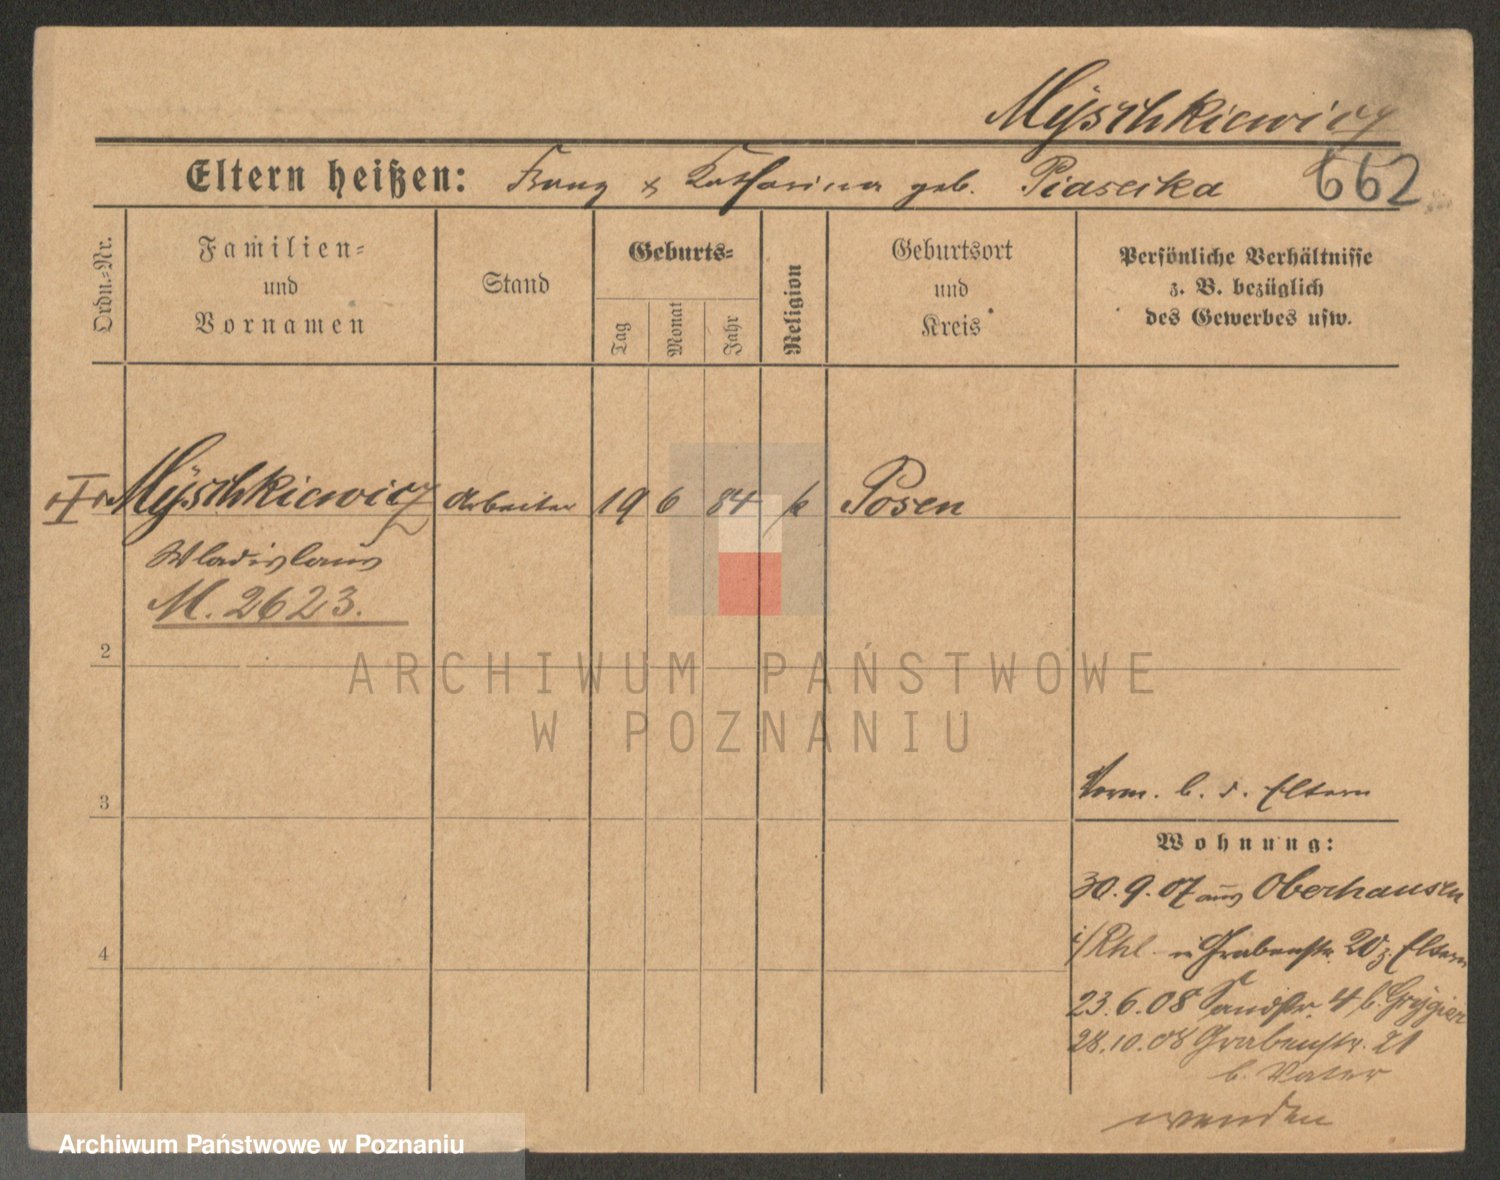 Myschkiewicz
Eltern heißen: Franz & Katharina geb. Piasecka 662
Ordn.-Nr.
Familien-
und
Vornamen
Stand
Geburts-
Tag
Monat
Jahr
Religion
Geburtsort
und
Kreis
Persönliche Verhältnisse
z. B. bezüglich
des Gewerbes usw.
Myschkiewicz Arbeiter 19 6 84 k Posen
Wladislaus
M. 2623.
2
ARCHIWUM PAŃSTWOWE
W POZNANIU
3
b. d. Eltern
Wohnung:
30.9.07 aus Oberhausen
i/Rhl. Grabenstr. 20 z. Eltern
4
23.6.08 Sandstr. 4 b. Grygier
28.10.08 Grabenstr. 21
b. Vater
wenden
Archiwum Państwowe w Poznaniu